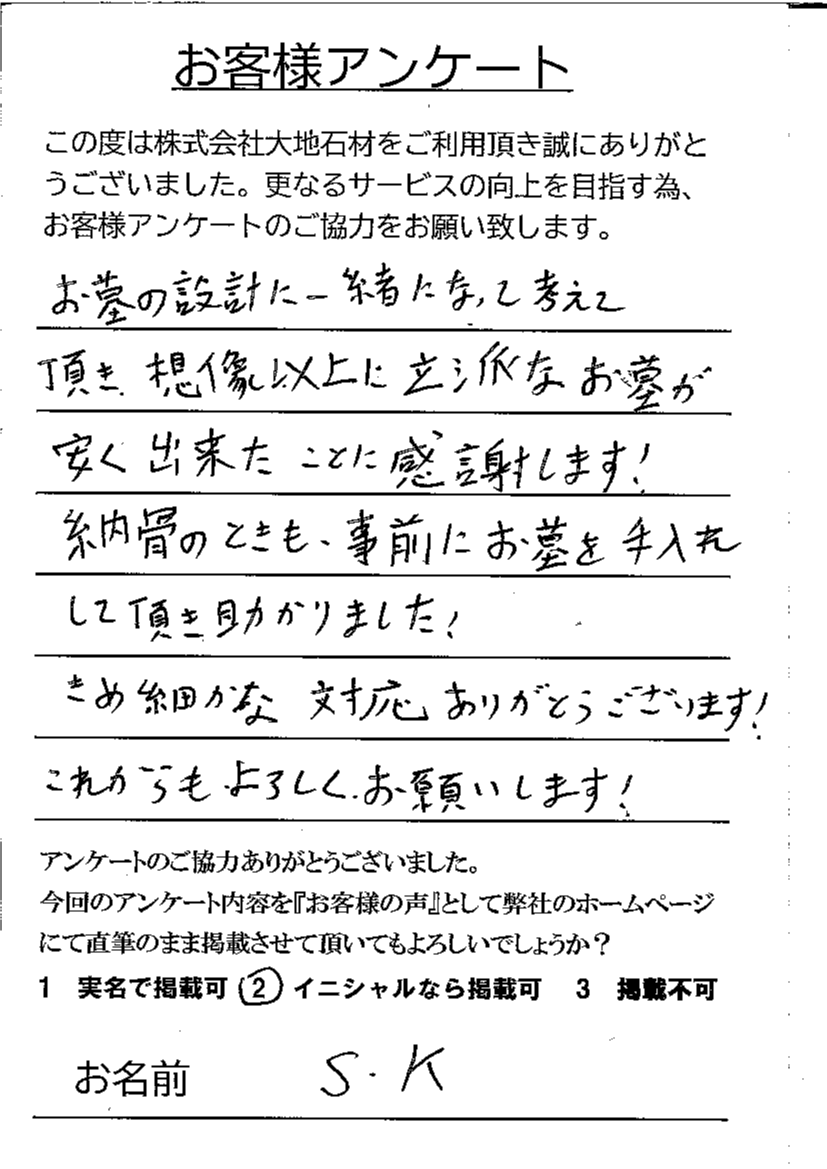 お客様アンケート
この度は株式会社大地石材をご利用頂き誠にありがと
うございました。更なるサービスの向上を目指す為、
お客様アンケートのご協力をお願い致します。
お墓の設計に一緒になって考えて
頂き 想像以上に立派なお墓が
安く出来たことに感謝します!
納骨のときも、事前にお墓を手入れ
して頂き助かりました!
きめ細かな 対応ありがとうございます!
これからもよろしくお願いします!
アンケートのご協力ありがとうございました。
今回のアンケート内容を『お客様の声』として弊社のホームページ
にて直筆のまま掲載させて頂いてもよろしいでしょうか?
1 実名で掲載可 2 イニシャルなら掲載可 3 掲載不可
お名前 S・K